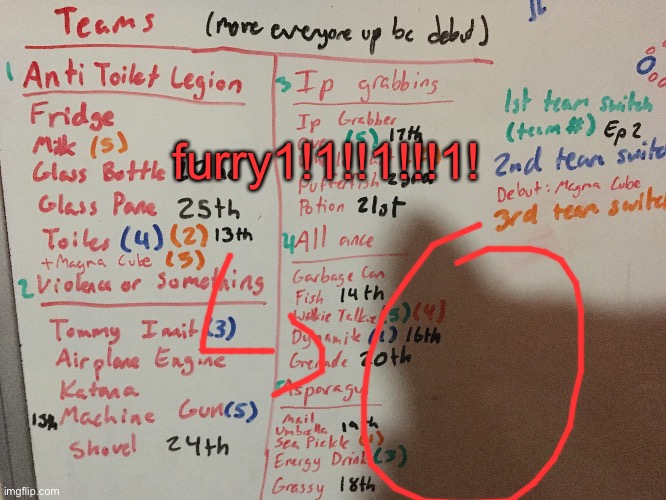 Teams (more everyone up bc debut)
1 Anti Toilet Legion
Fridge
Milk (5)
Glass Bottle
Glass Pane 25th
Toilet (4) (2) 13th
+ Magma Cube (5)
2 Violence or Something
Tommy Innit (3)
Airplane Engine
Katana
Machine Gun (5)
Shovel 24th
3 Ip grabbing
Ip Grabber
(5) 17th
furry1!1!!1!!!1!
Pufferfish
Potion 21st
4 All ance
Garbage Can
Fish 14th
Walkie Talkie (5) (4)
Dynamite (1) 16th
Grenade 20th
Asparagu
Mail
Umbrella 19th
Sea Pickle (1)
Energy Drink (3)
Grassy 18th
1st team switch
(team #) Ep 2
2nd team switch
Debut: Magma Cube
3rd team switch
imgflip.com